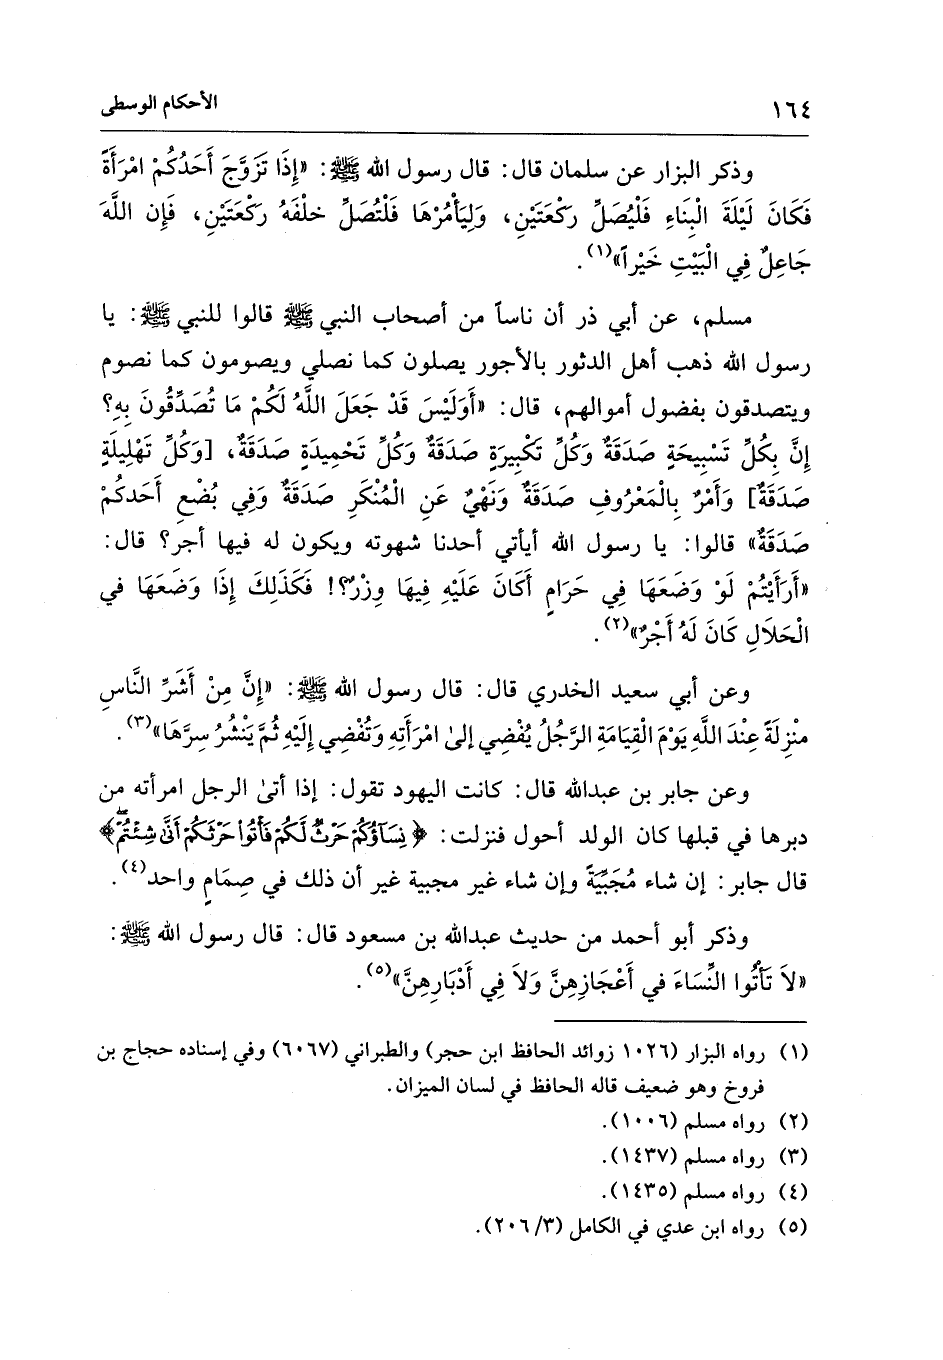 ١٦٤ الأحكام الوسطى
وذكر البزار عن سلمان قال: قال رسول الله ﷺ: «إِذَا تَزَوَّجَ أَحَدُكُمْ امْرَأَةً
فَكَانَ لَيْلَةَ الْبِنَاءِ فَلْيُصَلِّ رَكْعَتَيْنِ، وَلِيَأْمُرْهَا فَلْتُصَلِّ خلْفَهُ رَكْعَتَيْنِ، فَإِن اللَّهَ
جَاعِلٌ فِي الْبَيْتِ خَيْراً»(١).
مسلم، عن أبي ذر أن ناساً من أصحاب النبي ﷺ قالوا للنبي ﷺ: يا
رسول الله ذهب أهل الدثور بالأجور يصلون كما نصلي ويصومون كما نصوم
ويتصدقون بفضول أموالهم، قال: «أَوَلَيْسَ قَدْ جَعَلَ اللَّهُ لَكُمْ مَا تُصَدِّقُونَ بِهِ؟
إِنَّ بِكُلِّ تَسْبِيحَةٍ صَدَقَةٌ وَكُلِّ تَكْبِيرَةٍ صَدَقَةٌ وَكُلِّ تَحْمِيدَةٍ صَدَقَةٌ، [وَكُلِّ تَهْلِيلَةٍ
صَدَقَةٌ] وَأَمْرٌ بِالْمَعْرُوفِ صَدَقَةٌ وَنَهْيٌ عَنِ الْمُنْكَرِ صَدَقَةٌ وَفِي بُضْعِ أَحَدكُمْ
صَدَقَةٌ» قالوا: يا رسول الله أيأتي أحدنا شهوته ويكون له فيها أجر؟ قال:
«أَرَأَيْتُمْ لَوْ وَضَعَهَا فِي حَرَامٍ أَكَانَ عَلَيْهِ فِيهَا وِزْرٌ؟! فَكَذَلِكَ إِذَا وَضَعَهَا في
الْحَلَالِ كَانَ لَهُ أَجْرٌ»(٢).
وعن أبي سعيد الخدري قال: قال رسول الله ﷺ: «إِنَّ مِنْ أَشَرِّ النَّاسِ
منْزِلَةً عِنْدَ اللَّهِ يَوْمَ الْقِيَامَةِ الرَّجُلُ يُفْضِي إلىٰ امْرَأَتِهِ وَتُفْضِي إِلَيْهِ ثُمَّ يَنْشُرُ سِرَّهَا»(٣).
وعن جابر بن عبدالله قال: كانت اليهود تقول: إذا أتىٰ الرجل امرأته من
دبرها في قبلها كان الولد أحول فنزلت: ﴿نِسَآؤُكُمْ حَرْثٌ لَّكُمْ فَأْتُوا۟ حَرْثَكُمْ أَنَّىٰ شِئْتُمْۖ﴾
قال جابر: إن شاء مُجَبِّيَةً وإن شاء غير مجبية غير أن ذلك في صِمَامٍ واحد(٤).
وذكر أبو أحمد من حديث عبدالله بن مسعود قال: قال رسول الله ﷺ:
«لاَ تَأْتُوا النِّسَاءَ في أَعْجَازِهِنَّ وَلاَ فِي أَدْبَارِهِنَّ»(٥).
(١) رواه البزار (١٠٢٦ زوائد الحافظ ابن حجر) والطبراني (٦٠٦٧) وفي إسناده حجاج بن
فروخ وهو ضعيف قاله الحافظ في لسان الميزان.
(٢) رواه مسلم (١٠٠٦).
(٣) رواه مسلم (١٤٣٧).
(٤) رواه مسلم (١٤٣٥).
(٥) رواه ابن عدي في الكامل (٢٠٦/٣).